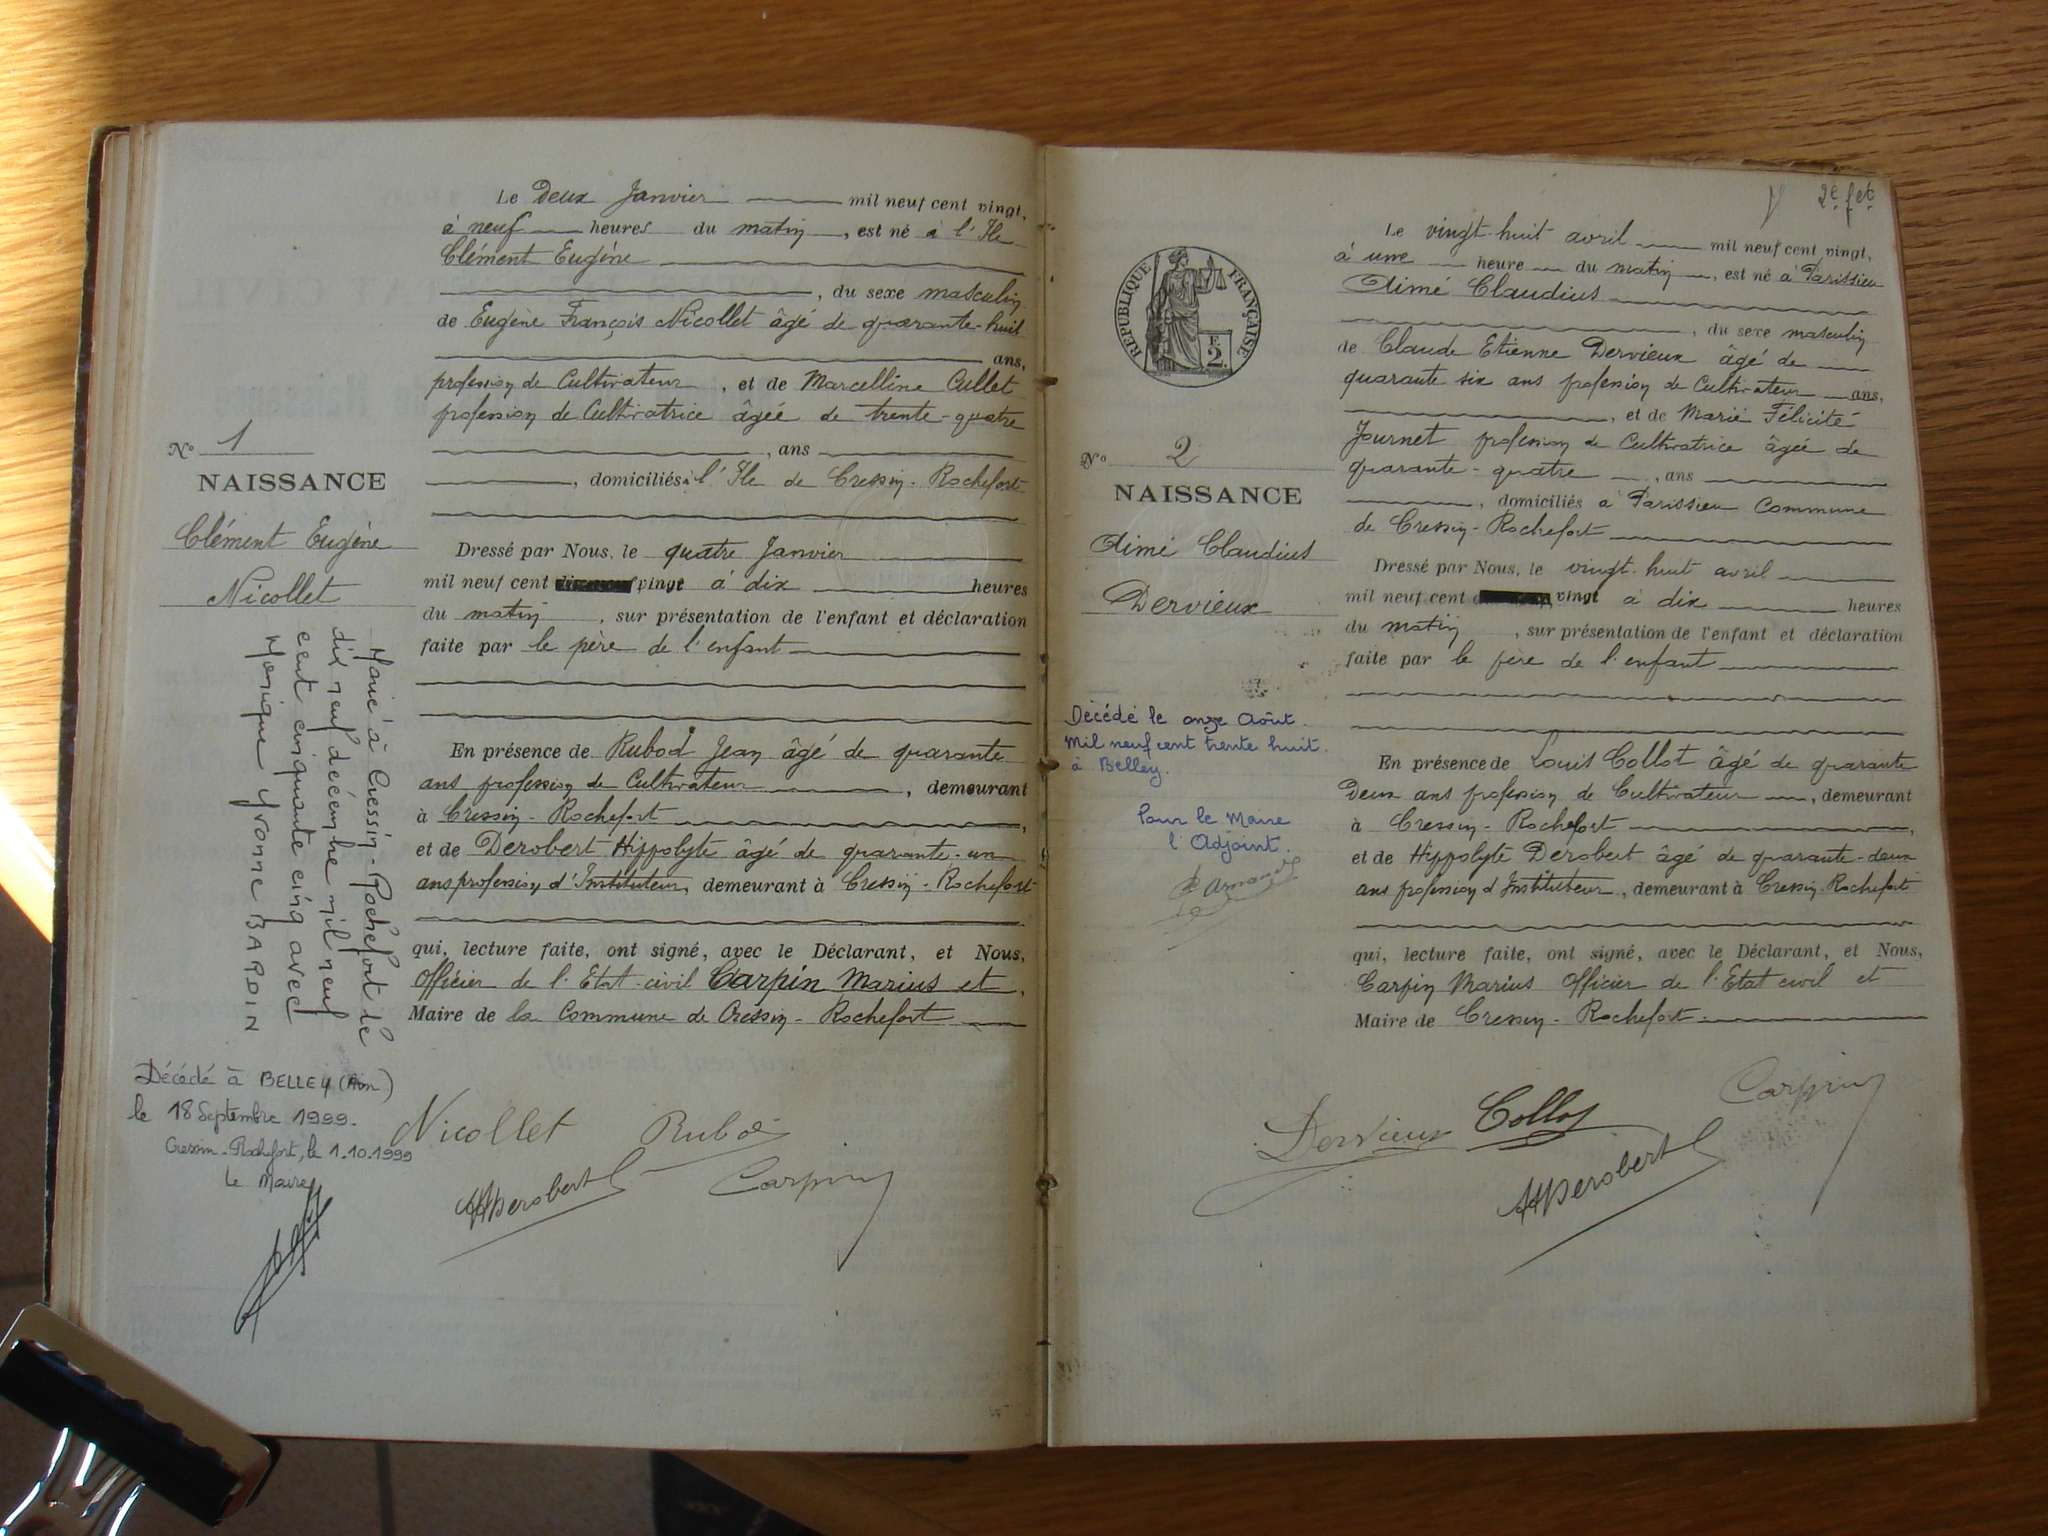 Le Deux Janvier mil neuf cent vingt,
à neuf heures du matin, est né à l'Ile
Clément Eugène
, du sexe masculin
de Eugène François Nicollet âgé de quarante-huit
ans,
profession de Cultivateur, et de Marcelline Cullet
profession de Cultivatrice âgée de trente-quatre
, ans
, domiciliés à l'Ile de Cressin-Rochefort
Nº 1
NAISSANCE
Clément Eugène
Nicollet
Dressé par Nous, le quatre Janvier
mil neuf cent vingt à dix heures
du matin, sur présentation de l'enfant et déclaration
faite par le père de l'enfant
En présence de Rubod Jean âgé de quarante
ans profession de Cultivateur, demeurant
à Cressin-Rochefort,
et de Derobert Hippolyte âgé de quarante-un
ans profession d'Instituteur, demeurant à Cressin-Rochefort
qui, lecture faite, ont signé, avec le Déclarant, et Nous,
Officier de l'Etat-civil Carpin Marius et,
Maire de la Commune de Cressin-Rochefort
Marié à Cressin-Rochefort le
dix neuf décembre mil neuf
cent cinquante cinq avec
Monique Yvonne BARDIN
Décédé à BELLEY (Ain)
le 18 Septembre 1999.
Cressin-Rochefort, le 1.10.1999
Le Maire
Nicollet Rubod
HDerobert Carpin
2e fet
RÉPUBLIQUE FRANÇAISE
2F.
Le vingt-huit avril mil neuf cent vingt,
à une heure du matin, est né à Parissieu
Aimé Claudius
, du sexe masculin
de Claude Etienne Dervieux âgé de
quarante six ans profession de Cultivateur ans,
, et de Marie Félicité
Journet profession de Cultivatrice âgée de
quarante-quatre, ans
, domiciliés à Parissieu Commune
de Cressin-Rochefort
Nº 2
NAISSANCE
Aimé Claudius
Dervieux
Dressé par Nous, le vingt-huit avril
mil neuf cent vingt à dix heures
du matin, sur présentation de l'enfant et déclaration
faite par le père de l'enfant
Décédé le onze Août
Mil neuf cent trente huit.
à Belley.
Pour le Maire
l'Adjoint.
En présence de Louis Collot âgé de quarante
Deux ans profession de Cultivateur, demeurant
à Cressin-Rochefort,
et de Hippolyte Derobert âgé de quarante-deux
ans profession d'Instituteur, demeurant à Cressin-Rochefort
qui, lecture faite, ont signé, avec le Déclarant, et Nous,
Carpin Marius Officier de l'Etat civil et
Maire de Cressin-Rochefort
Dervieux Collot Carpin
HDerobert